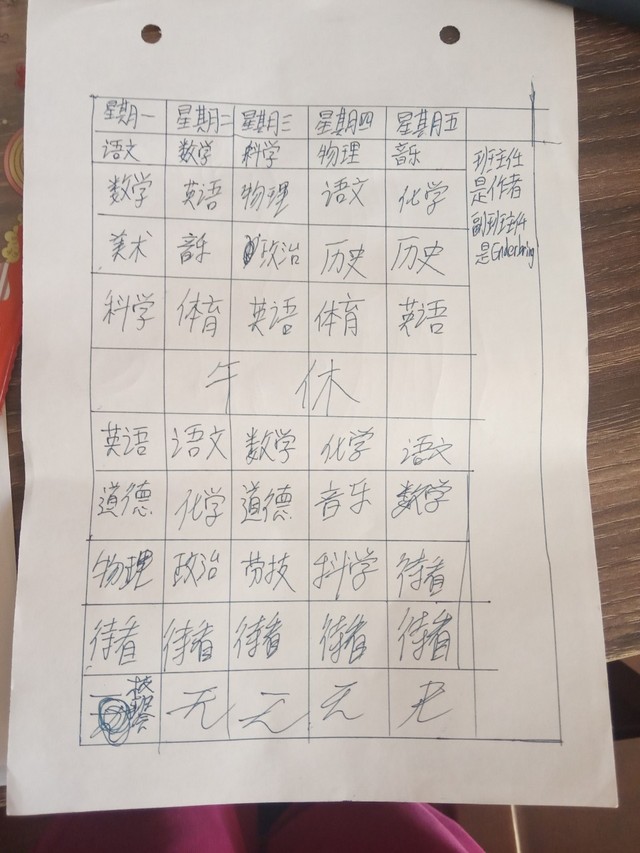 星期一 星期二 星期三 星期四 星期五
语文 数学 科学 物理 音乐
数学 英语 物理 语文 化学
美术 音乐 政治 历史 历史
科学 体育 英语 体育 英语
午休
英语 语文 数学 化学 语文
道德 化学 道德 音乐 数学
物理 政治 劳技 科学 待看
待看 待看 待看 待看 待看
无 无 无 无
班主任
是作者
副班主任
是